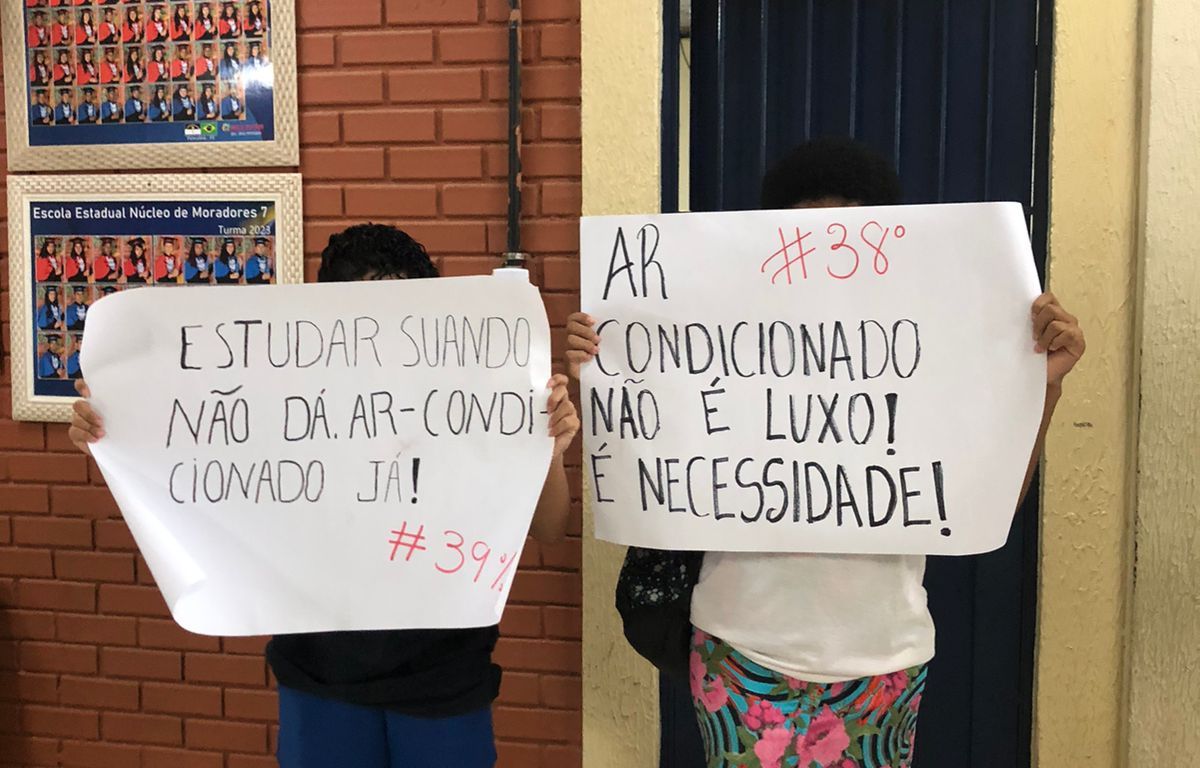 Escola Estadual Núcleo de Moradores 7
Turma 2023
ESTUDAR SUANDO
NÃO DÁ. AR-CONDI-
CIONADO JÁ!
#39%
AR #38°
CONDICIONADO
NÃO É LUXO!
É NECESSIDADE!